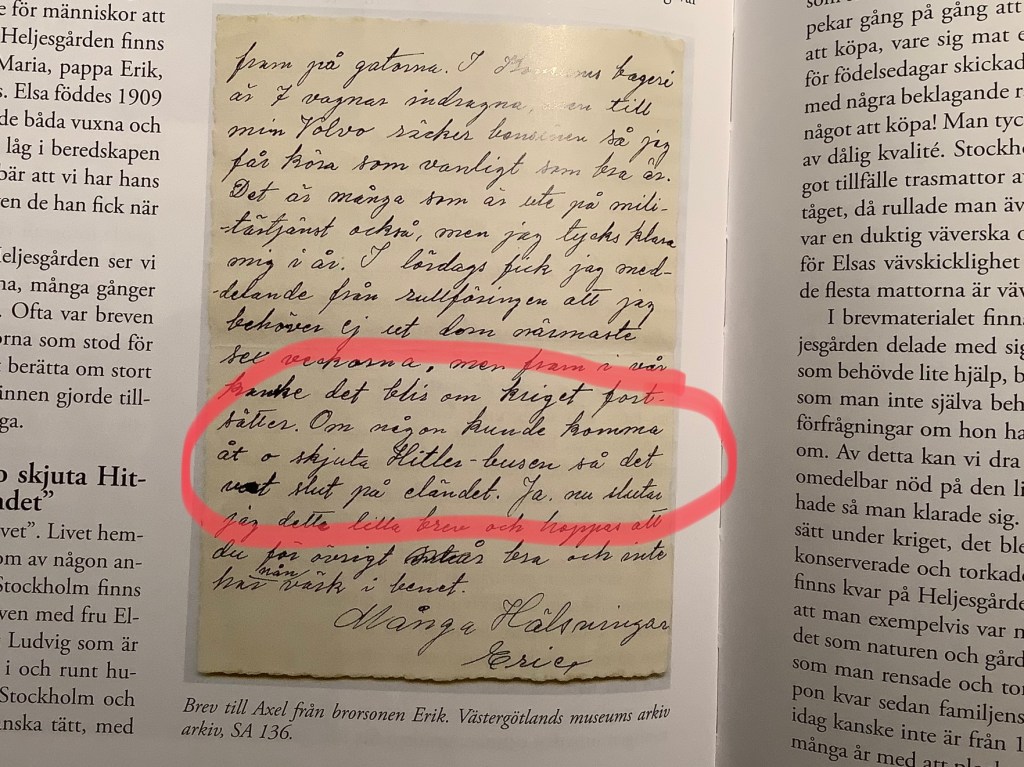 e för människor att
Heljesgården finns
Maria, pappa Erik,
s. Elsa föddes 1909
de båda vuxna och
låg i beredskapen
bär att vi har hans
en de han fick när
Heljesgården ser vi
na, många gånger
. Ofta var breven
orna som stod för
t berätta om stort
innen gjorde till-
ga.
o skjuta Hit-
ndet”
vet”. Livet hem-
som av någon an-
Stockholm finns
ven med fru El-
Ludvig som är
i och runt hu-
Stockholm och
anska tätt, med
fram på gatorna. I bageri
är 7 vagnar indragna, men till
min Volvo räcker bensinen så jag
får köra som vanligt som bra är.
Det är många som är ute på mili-
-tärtjänst också, men jag tycks klara
mig i år. I lördags fick jag med-
-delande från rullföringen att jag
behöver ej ut dom närmaste
sex veckorna, men fram i vår
kanske det blir om kriget fort-
sätter. Om någon kunde komma
åt o skjuta Hitler-busen så det
vart slut på eländet. Ja, nu slutar
jag detta lilla brev och hoppas att
du för övrigt är bra och inte
har nån värk i benet.
Många Hälsningar
Eric
Brev till Axel från brorsonen Erik. Västergötlands museums arkiv
arkiv, SA 136.
pekar gång på gång att
att köpa, vare sig mat e
för födelsedagar skickad
med några beklagande r
något att köpa! Man tyc
av dålig kvalité. Stockh
got tillfälle trasmattor a
tåget, då rullade man äv
var en duktig väverska o
för Elsas vävskicklighet
de flesta mattorna är väv
I brevmaterialet finna
jesgården delade med sig
som behövde lite hjälp, b
som man inte själva beh
förfrågningar om hon ha
om. Av detta kan vi dra
omedelbar nöd på den li
hade så man klarade sig.
sätt under kriget, det ble
konserverade och torkade
finns kvar på Heljesgårde
att man exempelvis var n
det som naturen och gård
som man rensade och tor
pon kvar sedan familjens
idag kanske inte är från 1
många år med att